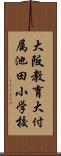 大阪教育大付
属池田小学校